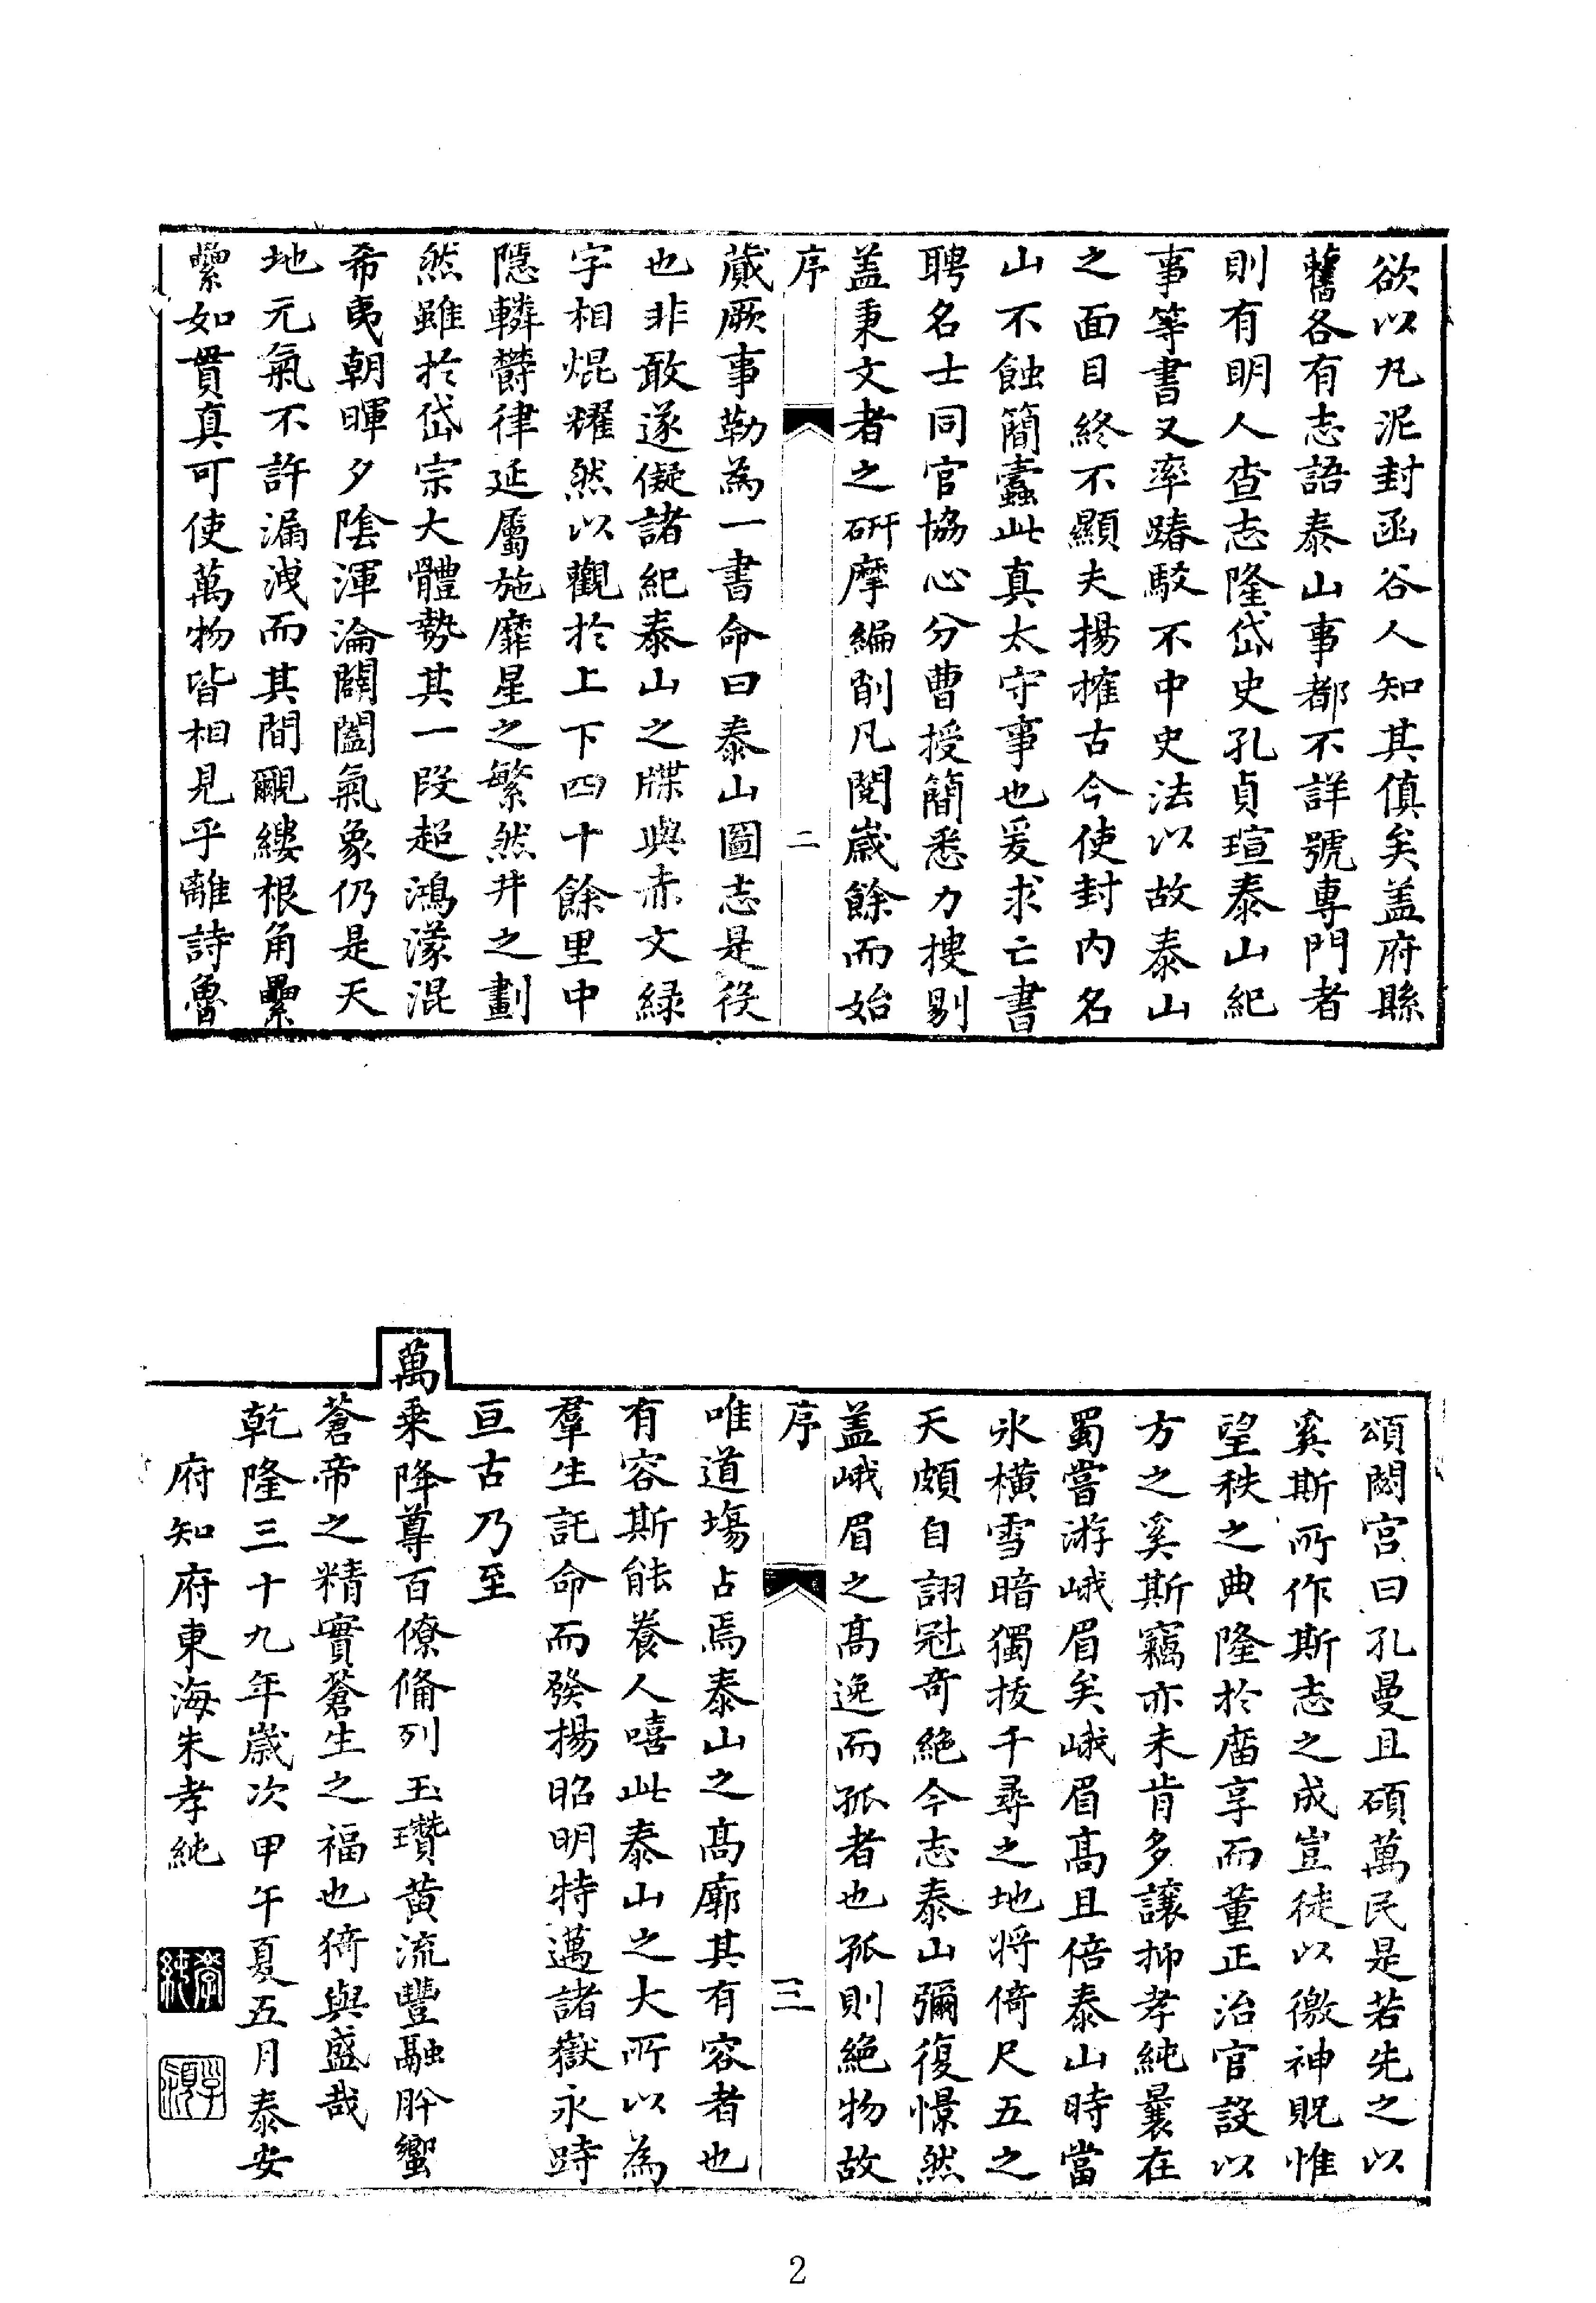 欲以丸泥封函谷人知其傎矣盖府縣
舊各有志語泰山事都不詳號專門者
則有明人查志隆岱史孔貞瑄泰山紀
事等書又率踳駁不中史法以故泰山
之面目終不顯夫揚搉古今使封内名
山不蝕簡蠹此真太守事也爰求亡書
聘名士同官協心分曹授簡悉力搜剔
盖秉文者之研摩編削凡閱歲餘而始
序
二
蕆厥事勒為一書命曰泰山圖志是役
也非敢遂儗諸紀泰山之牒與赤文綠
字相焜耀然以觀於上下四十餘里中
隱轔欝律延屬施靡星之繁然井之劃
然雖於岱宗大體勢其一段超鴻濛混
希夷朝暉夕陰渾淪闢闔氣象仍是天
地元氣不許漏洩而其間覼縷根角纍
纍如貫真可使萬物皆相見乎離詩魯
頌閟宫曰孔曼且碩萬民是若先之以
奚斯所作斯志之成豈徒以徼神貺惟
望秩之典隆於廇享而董正治官設以
方之奚斯竊亦未肯多讓抑孝純曩在
蜀嘗游峨眉矣峨眉高且倍泰山時當
氷橫雪暗獨拔千尋之地將倚尺五之
天頗自詡冠奇絶今志泰山彌復憬然
盖峨眉之高逸而孤者也孤則絶物故
序
三
唯道塲占焉泰山之高廓其有容者也
有容斯能養人嘻此泰山之大所以為
羣生託命而發揚昭明特邁諸嶽永跱
亘古乃至
萬乘降尊百僚俻列玉瓚黄流豐融肸蠁
蒼帝之精實蒼生之福也猗與盛哉
乾隆三十九年歲次甲午夏五月泰安
府知府東海朱孝純
孝純
2